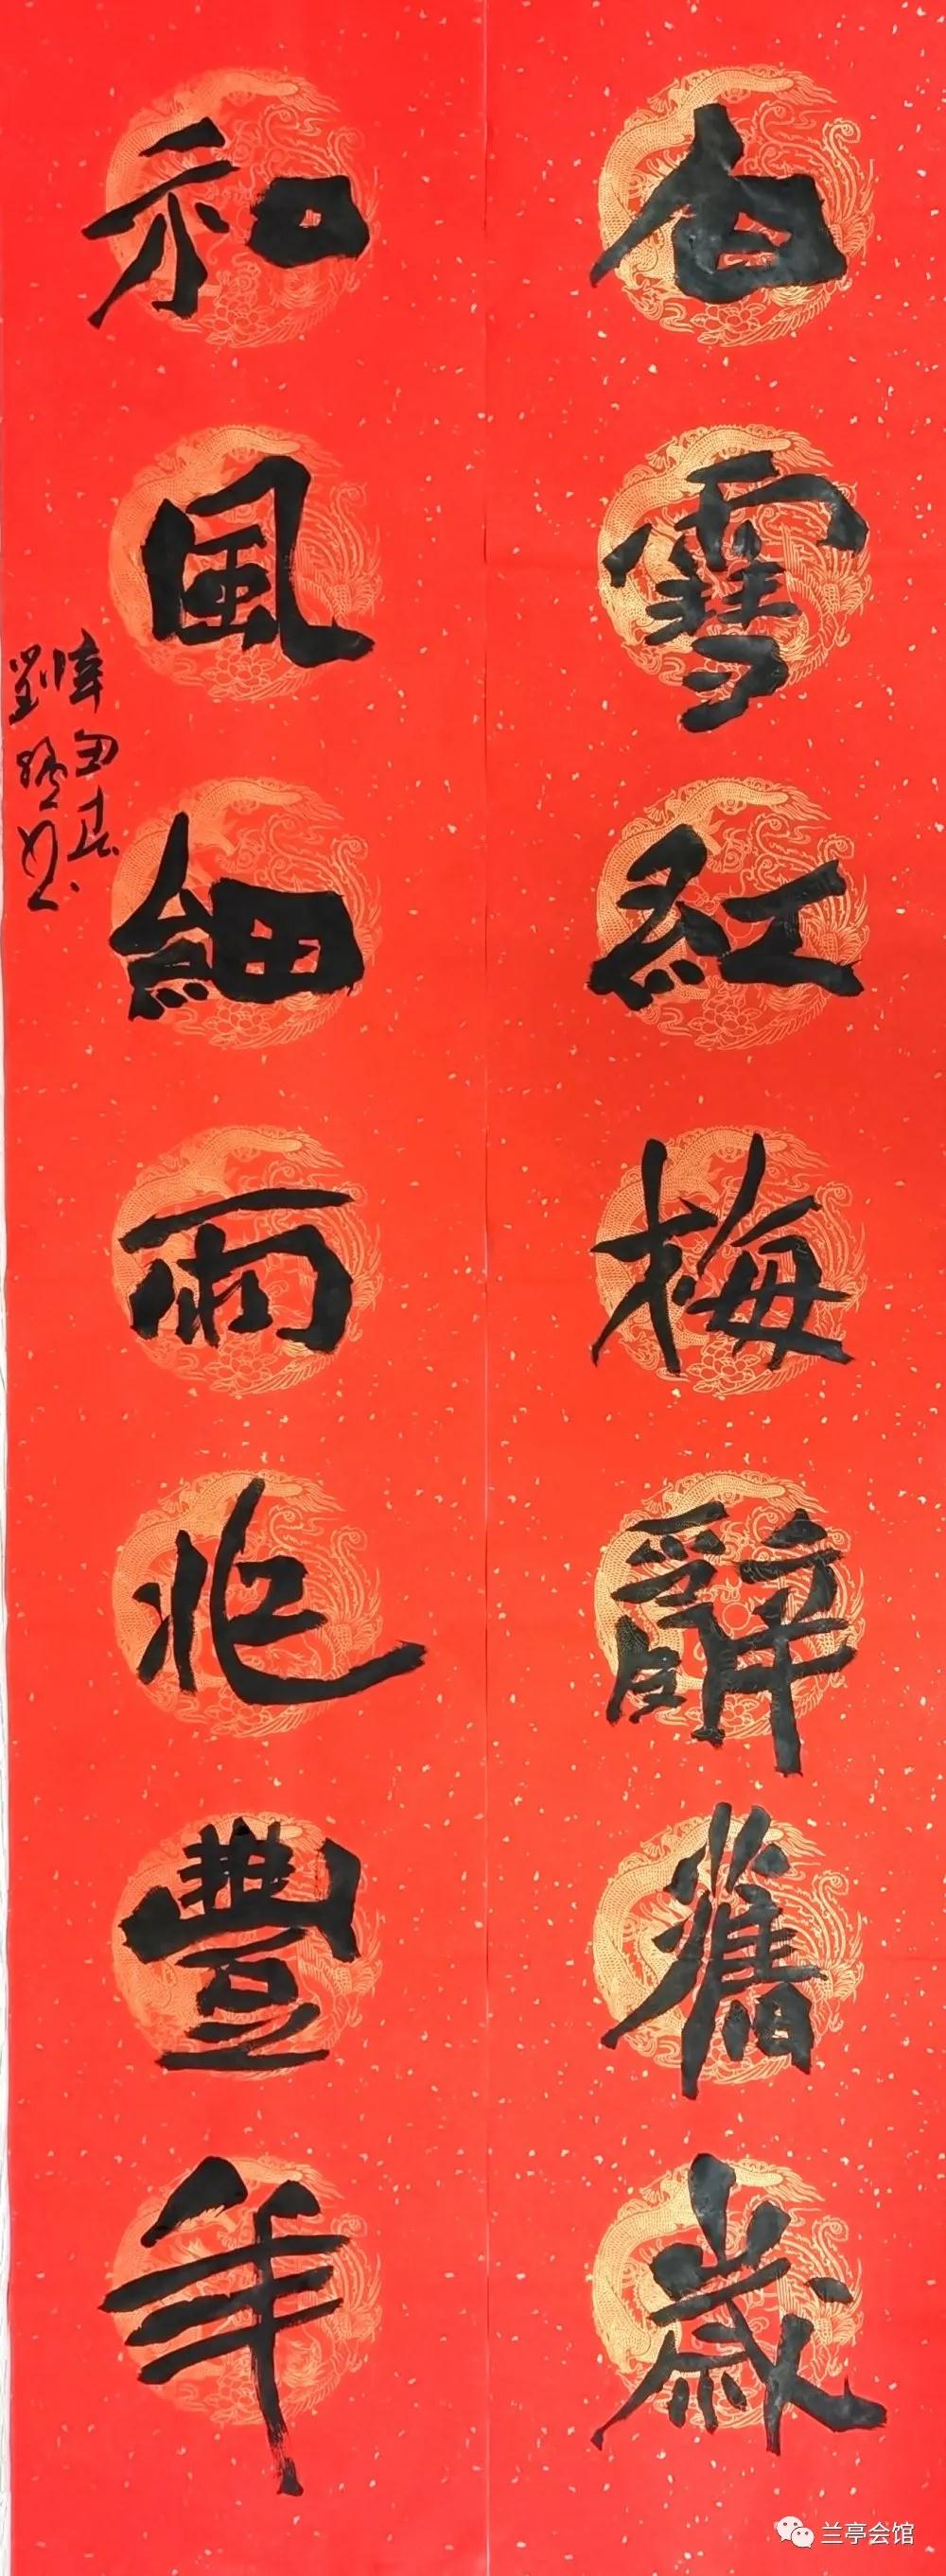 白雪紅梅辭舊歲
和風細雨兆豐年
兰亭会馆